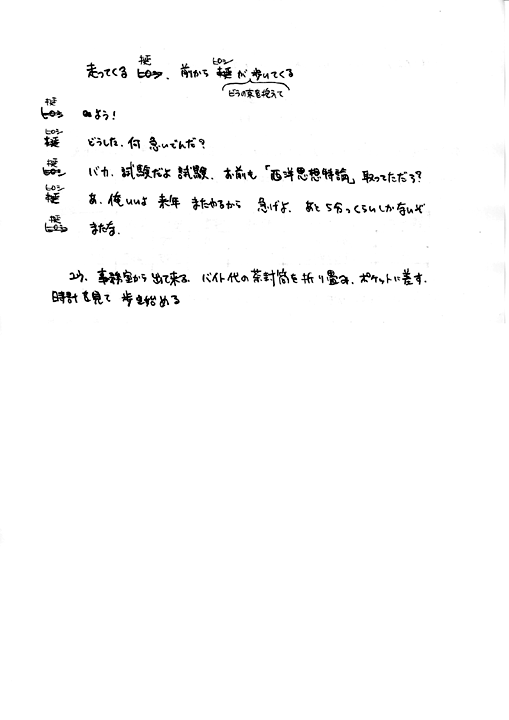 挺 ヒロシ
走ってくる ヒロシ、前から 挺が 歩いてくる
ビラの束を抱えて
挺
ヒロシ およう!
ヒロシ
挺 どうした、何 急いでんだ?
挺
ヒロシ バカ、試験だよ 試験、お前も「西洋思想特論」取ってただろ?
ヒロシ
挺 あ、俺いいよ 来年 またやるから 急げよ、あと5分っくらいしかないぞ
挺
ヒロシ またな。
事務室から出て来る、バイト代の茶封筒を折り畳み、ポケットに差す。
時計を見て 歩き始める